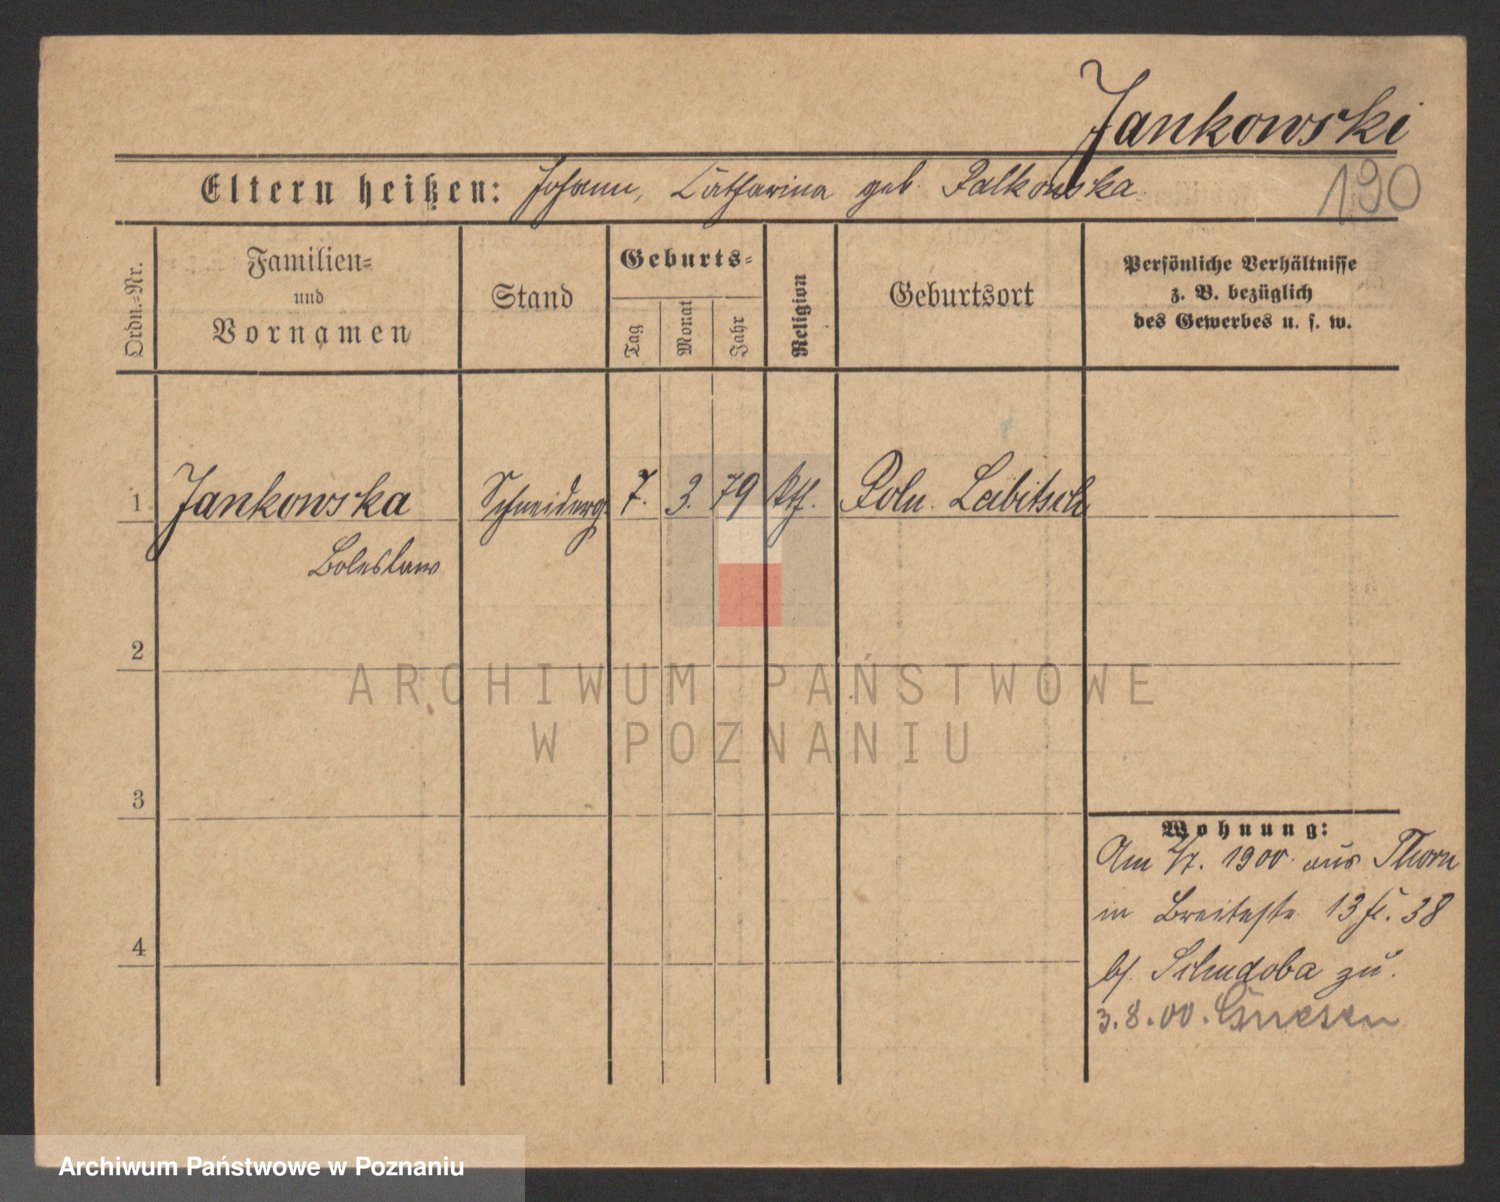 Jankowski
190
Eltern heißen: Johann, Catharina geb. Falkowska
Ordn.=Nr.
Familien=
und
Vornamen
Stand
Geburts=
Tag
Monat
Jahr
Religion
Geburtsort
Persönliche Verhältnisse
z. B. bezüglich
des Gewerbes u. s. w.
1 Jankowska Schneiderg. 7. 3. 79 kth. Poln. Leibitsch
Boleslaw
2
ARCHIWUM PAŃSTWOWE
W POZNANIU
3
Wohnung:
Am 1900 aus Thorn
in Breitestr. 13 38
bj. zu.
4
3.8.00. Gnesen
Archiwum Państwowe w Poznaniu